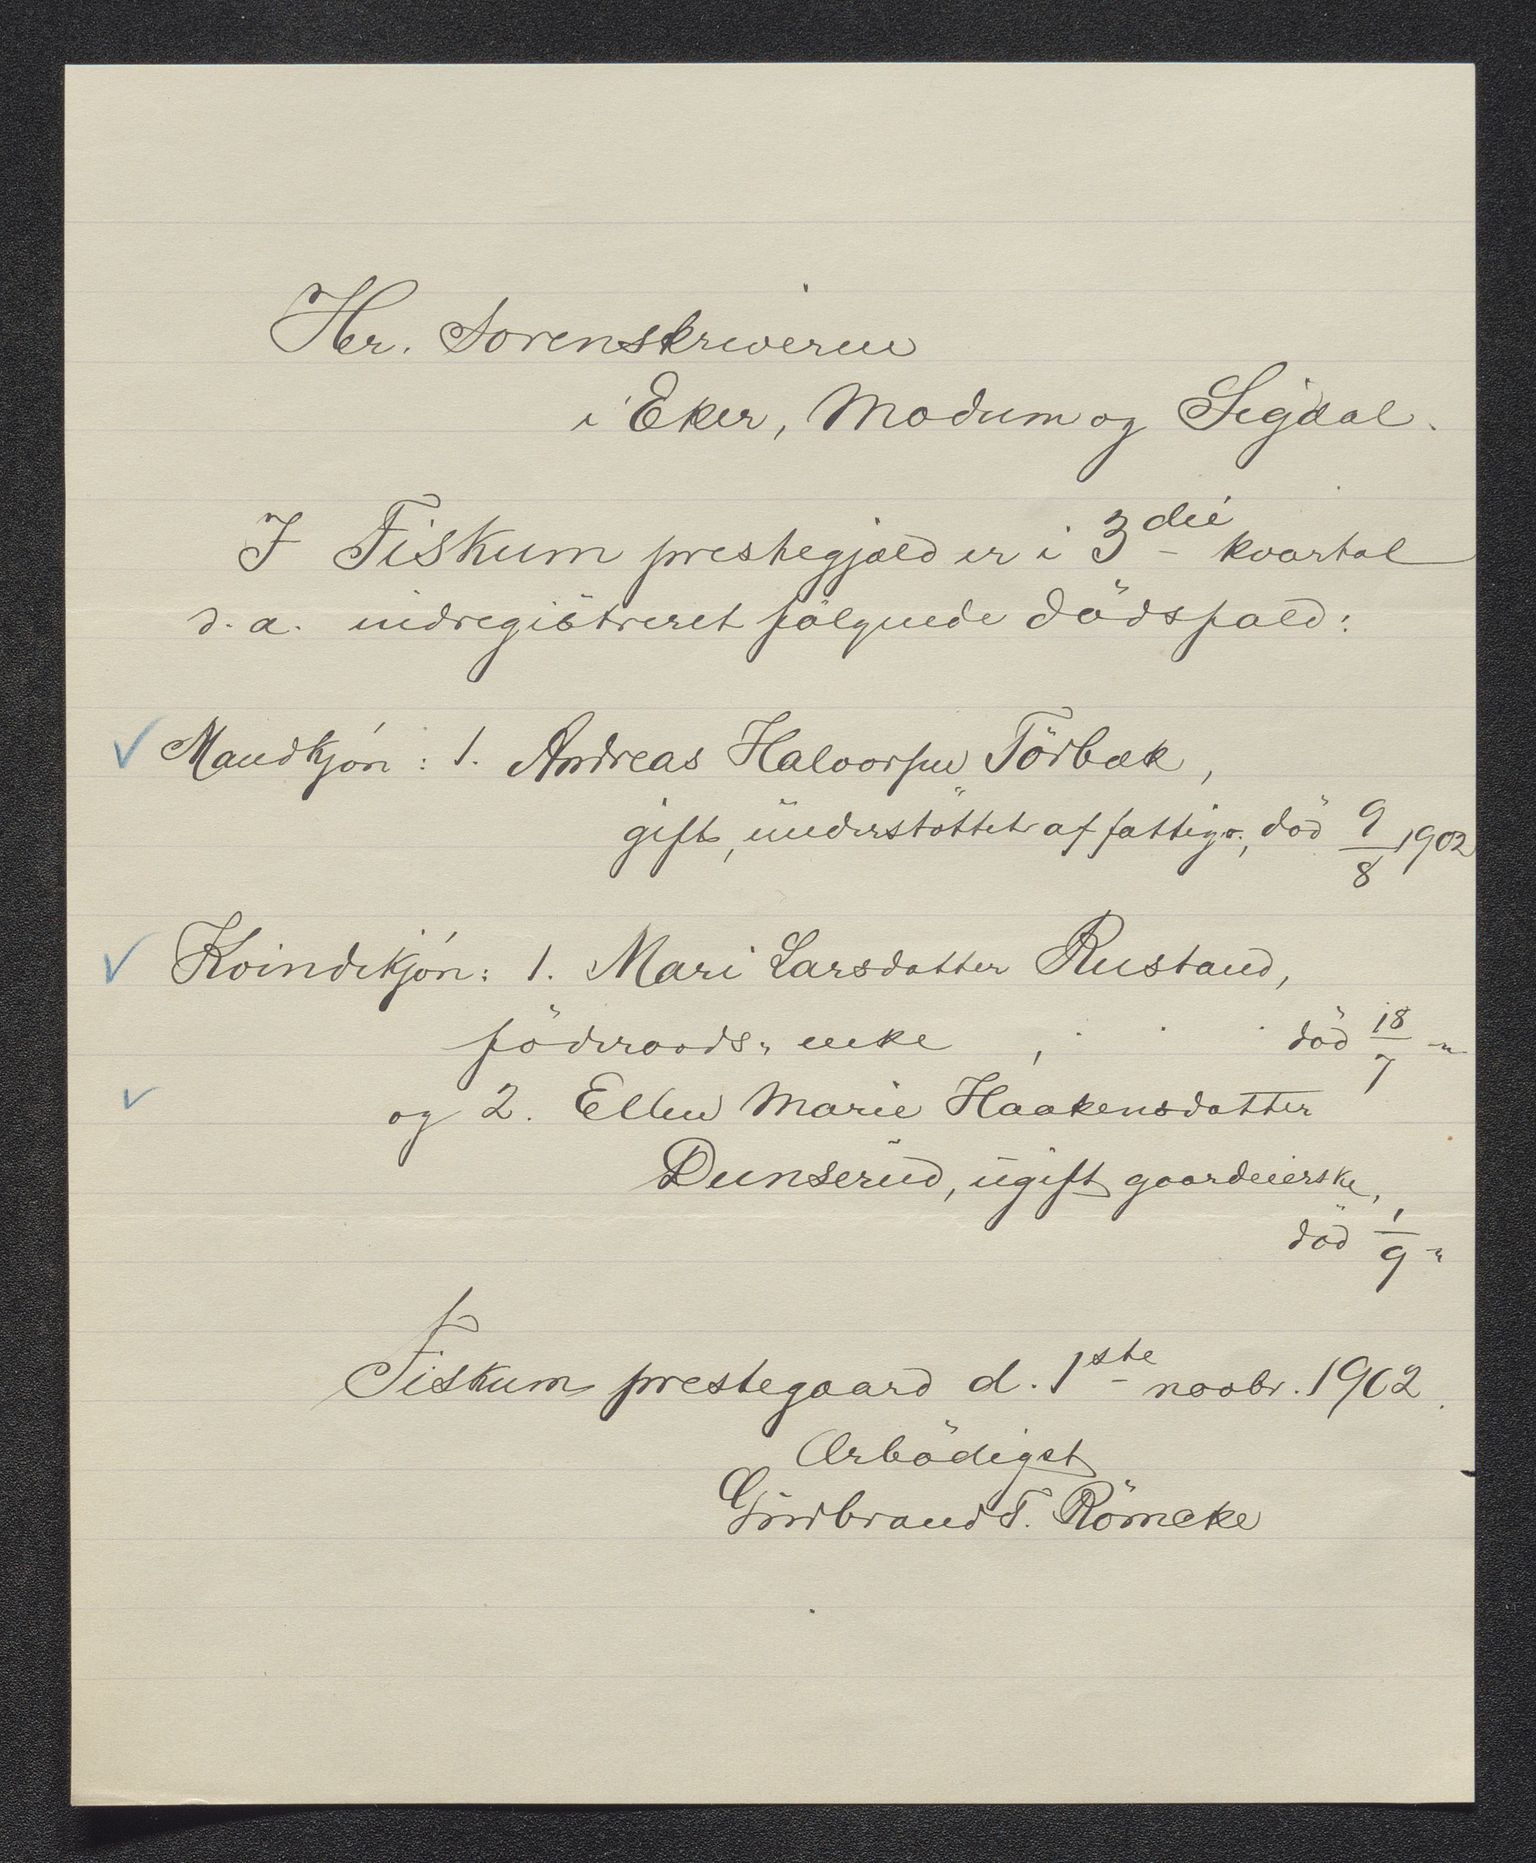 Hr. Sorenskriveren
i Eker, Modum og Sigdal.
I Fiskum prestegjæld er i 3die kvartal
d. a. indregistreret følgende dödsfald:
✓ Mandkjön: 1. Andreas Halvorsen Törbæk,
gift, understöttet af fattigv., död 9/8 1902
✓ Kvindekjön: 1. Mari Larsdatter Rustand,
föderaads-enke, död 18/7 "
✓ og 2. Ellen Marie Haakensdatter
Dunserud, ugift gaardeierske,
död 1/9 "
Fiskum prestegaard d. 1ste novbr. 1902.
Ærbödigst
Gudbrand T. Römcke